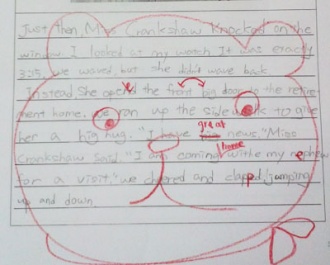 Just then Miss Crankshaw Knocked on the
window I looked at my watch It was exactly
3:15, we waved, but she didn't wave back
Instead She opened the front big door to the retire
ment home. we ran up the side walk to give
her a big hug. "I have great news," Miss
Crankshaw said. "I am coming home with my nephew
for a visit," we cheered and clapped jumping
up and down.